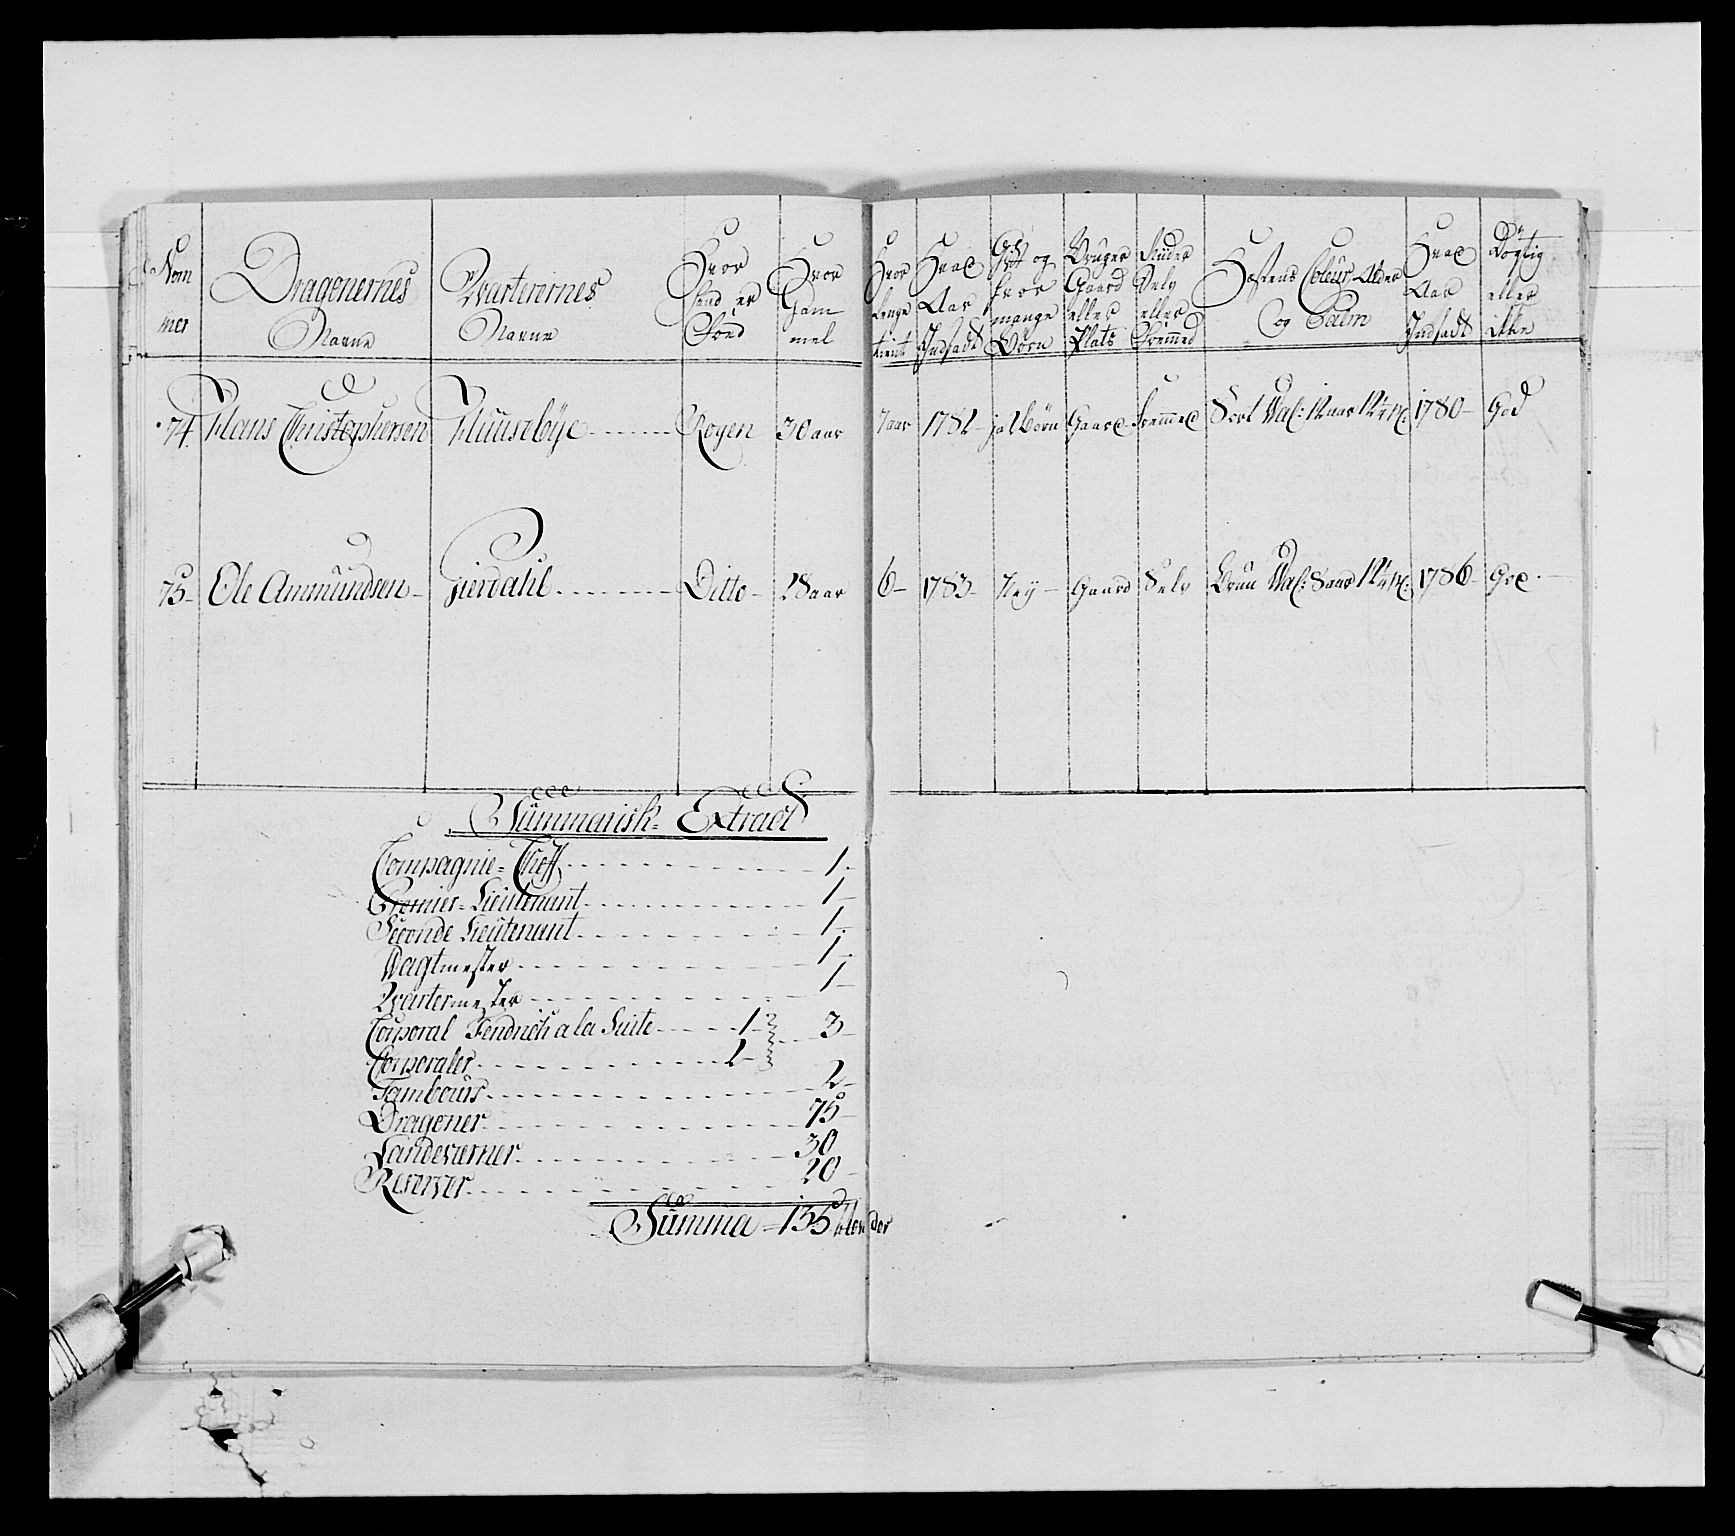 Nom
mer
Dragonernes
Navne
Qvarterernes
Navne
Hvor
hand er
Fød
Hvor
Gam
mel
Hvor
Lenge
tient
Hvad
Aar
Indsadt
Gift og
hvor
mange
Børn
Bruger
Gaard
eller
Plats
Ruder
Selv
eller
Fremed
Hestens Coleur, Alder
og Palm
Hvad
Aar
Indsadt
Dÿgtig
eller
ikke
74. Hans Christophersen Huusebÿe Rogen 30 aar 7 aar 1782 ja 2 børn Gaard Fremed Sort Val: 12 aar 12 1780 God
75 Ole Ammundsen Gierdahl Ditto 28 aar 6 1783 Neÿ Gaard Selv Brun Val: 8 aar 12 1786 God
Summarisk Extract
Compagnie-Cheff 1
Premier-Lieutenant 1
Seconde Lieutenant 1
Wagtmester 1
Qvartermester 1
Corporal Fendrich a la Suite 1 3
Corporaler 2
Tambours 2
Dragoner 75
Landeværner 30
Reserver 20
Summa 135